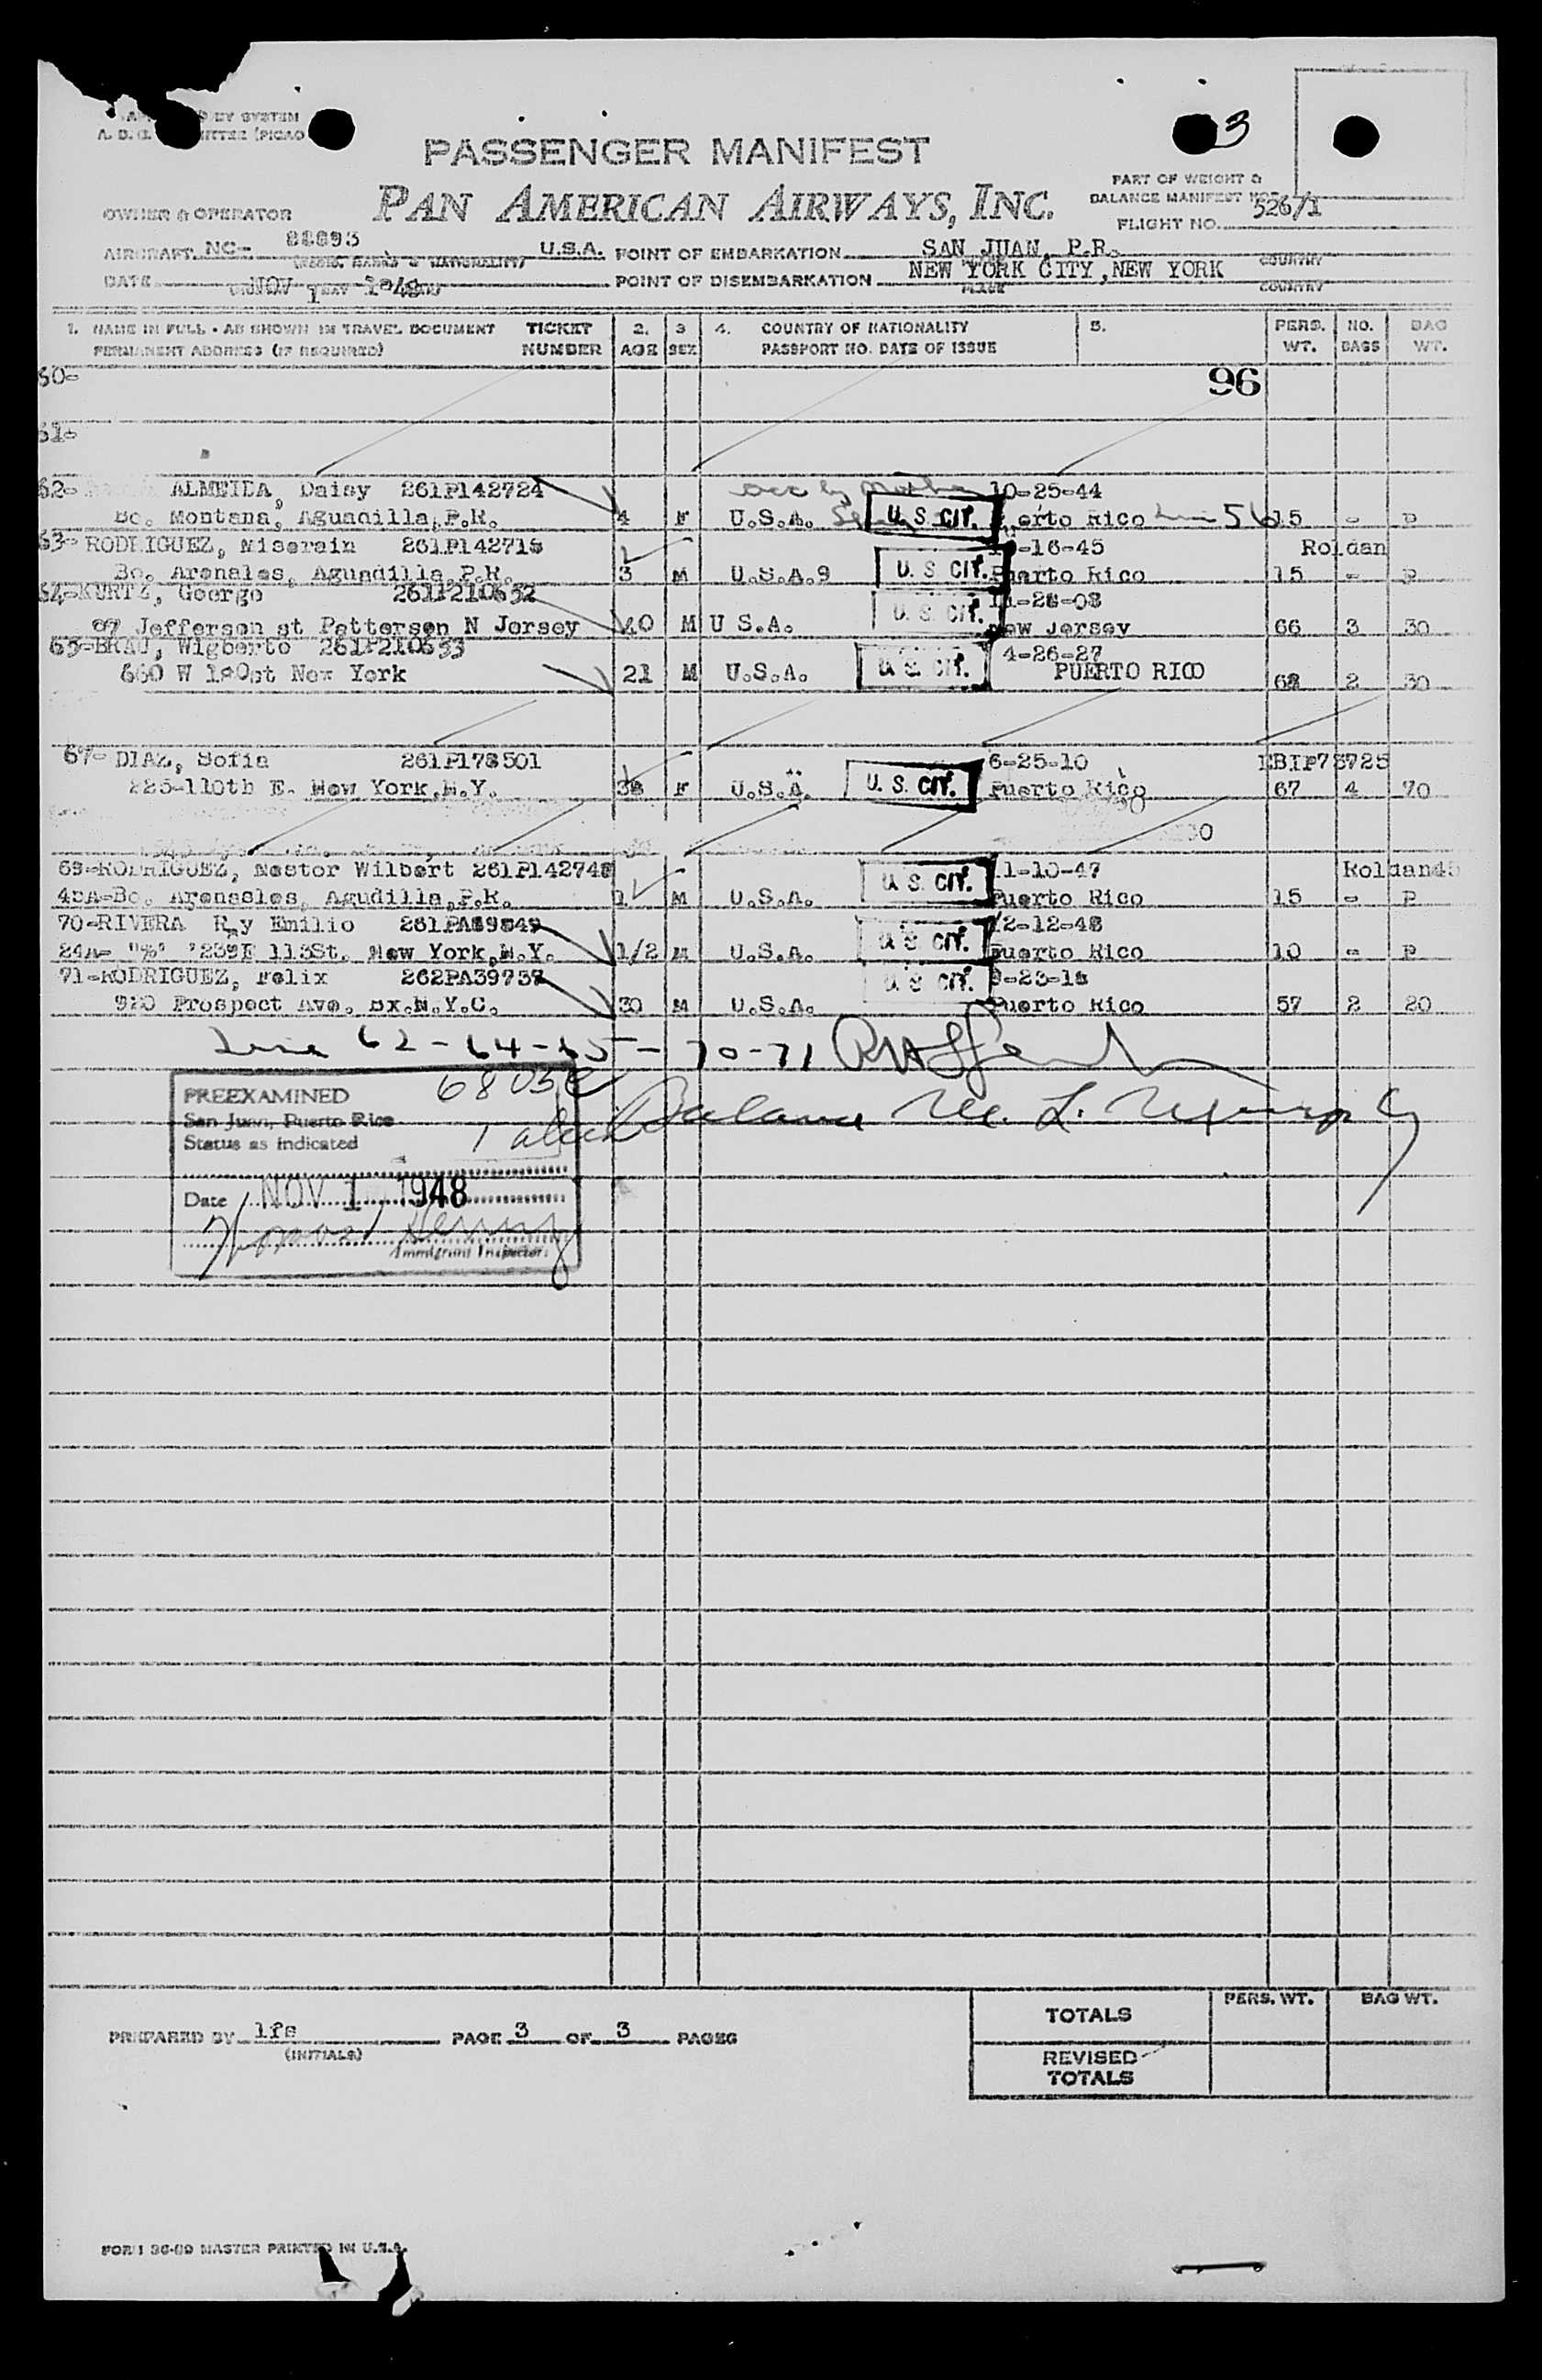 3
PASSENGER MANIFEST
PAN AMERICAN AIRWAYS, INC.
PART OF WEIGHT &
BALANCE MANIFEST NO.
OWNER & OPERATOR
FLIGHT NO. 526/1
AIRCRAFT NC- 88893 U.S.A. POINT OF EMBARKATION SAN JUAN, P.R. COUNTRY
DATE NOV 1 1948 POINT OF DISEMBARKATION NEW YORK CITY, NEW YORK COUNTRY
PLACE
1. NAME IN FULL - AS SHOWN IN TRAVEL DOCUMENT TICKET 2. 3 4. COUNTRY OF NATIONALITY 5. PERS. NO. BAG
PERMANENT ADDRESS (IF REQUIRED) NUMBER AGE SEX PASSPORT NO. DATE OF ISSUE WT. BAGS WT.
60- 96
61-
62- ALMEIDA, Daisy 261P142724 10-25-44
Bo. Montana, Aguadilla, P.R. 4 F U.S.A. U. S. CIT. Puerto Rico 56 15 - P
63- RODRIGUEZ, Miserain 261P142718 -16-45 Roldan
Bo. Arenales, Aguadilla P.R. 3 M U.S.A.9 U. S. CIT. Puerto Rico 15 - P
64-KURTZ, George 261P210632 11-28-08
97 Jefferson st Patterson N Jersey 40 M U S.A. U. S. CIT. New Jersey 66 3 30
65-BRAU, Wigberto 261P210633 4-26-27
660 W 180st New York 21 M U.S.A. U. S. CIT. PUERTO RICO 68 2 30
67- DIAZ, Sofia 261P178501 6-25-10 EBIP78725
225-110th E. New York, N.Y. 38 F U.S.A. U. S. CIT. Puerto Rico 67 4 70
69-RODRIGUEZ, Nestor Wilbert 261P142748 11-10-47 Roldan45
45A-Bo. Arenasles, Agudilla, P.R. 1 M U.S.A. U. S. CIT. Puerto Rico 15 - P
70-RIVERA Ray Emilio 261PA89849 12-12-48
24A- "%" '239E 113St. New York, N.Y. 1/2 M U.S.A. U. S. CIT. Puerto Rico 10 - P
71-RODRIGUEZ, Felix 262PA39757 9-23-18
920 Prospect Ave. Bx.N.Y.C. 30 M U.S.A. U. S. CIT. Puerto Rico 57 2 20
Line 62-64-65-70-71
PREEXAMINED
San Juan, Puerto Rico
Status as indicated
Balance M. L. Murphy
Date NOV 1 1948
Immigrant Inspector
TOTALS PERS. WT. BAG WT.
PREPARED BY lfs PAGE 3 OF 3 PAGES
(INITIALS)
REVISED
TOTALS
FORM 96-80 MASTER PRINTED IN U.S.A.